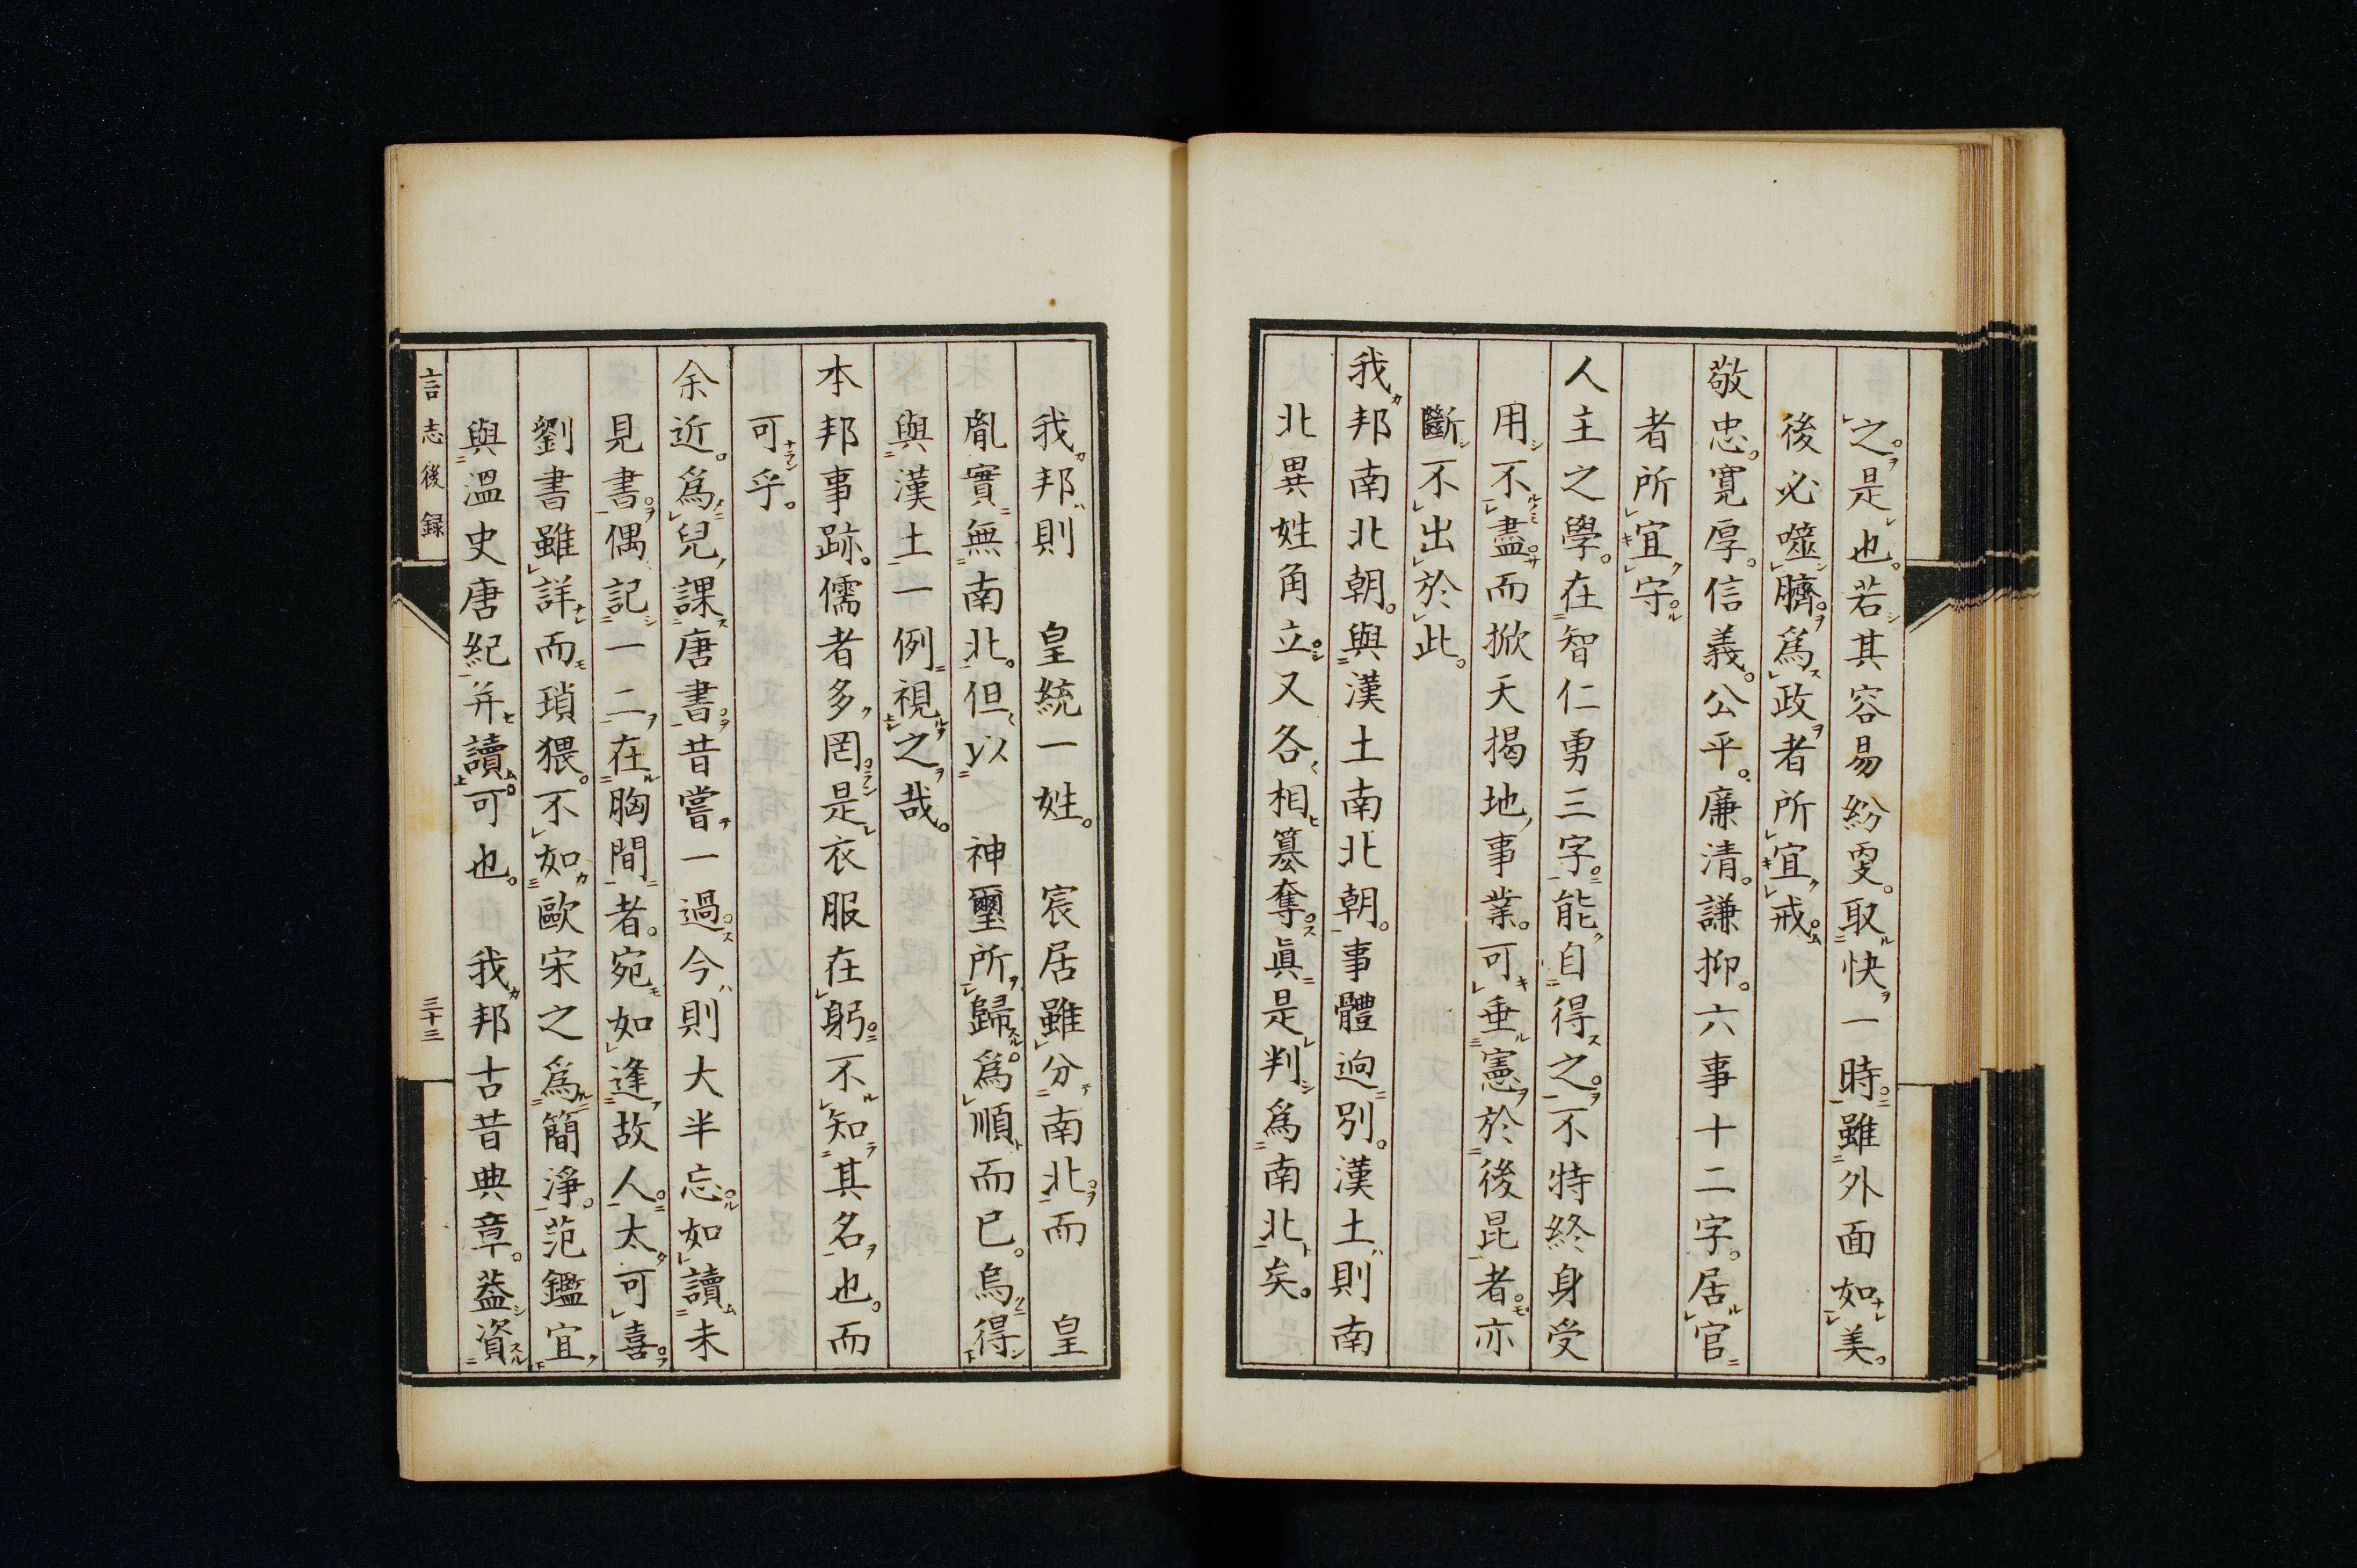 之。是也。若其容易紛更。取快一時。雖外面如美。
後必噬臍。爲政者所宜戒。
敬忠。寬厚。信義。公平。廉清。謙抑。六事十二字。居官
者所宜守。
人主之學。在智仁勇三字。能自得之。不特終身受
用不盡。而掀天揭地事業。可垂憲於後昆者。亦
斷不出於此。
我邦南北朝。與漢土南北朝。事體逈別。漢土則南
北異姓角立。又各相簒奪。眞是判爲南北矣。
我邦則　皇統一姓。　宸居雖分南北。而　皇
胤實無南北。但以　神璽所歸。爲順而已。烏得
與漢土一例視之哉。
本邦事跡。儒者多罔。是衣服在躬。不知其名也。而
可乎。
余近。爲兒課唐書。昔嘗一過。今則大半忘。如讀未
見書。偶記一二在胸間者。宛如逢故人。太可喜。
劉書雖詳而瑣猥。不如歐宋之爲簡淨。范鑑宜
與溫史唐紀并讀。可也。　我邦古昔典章。葢資
言志後録
三十三